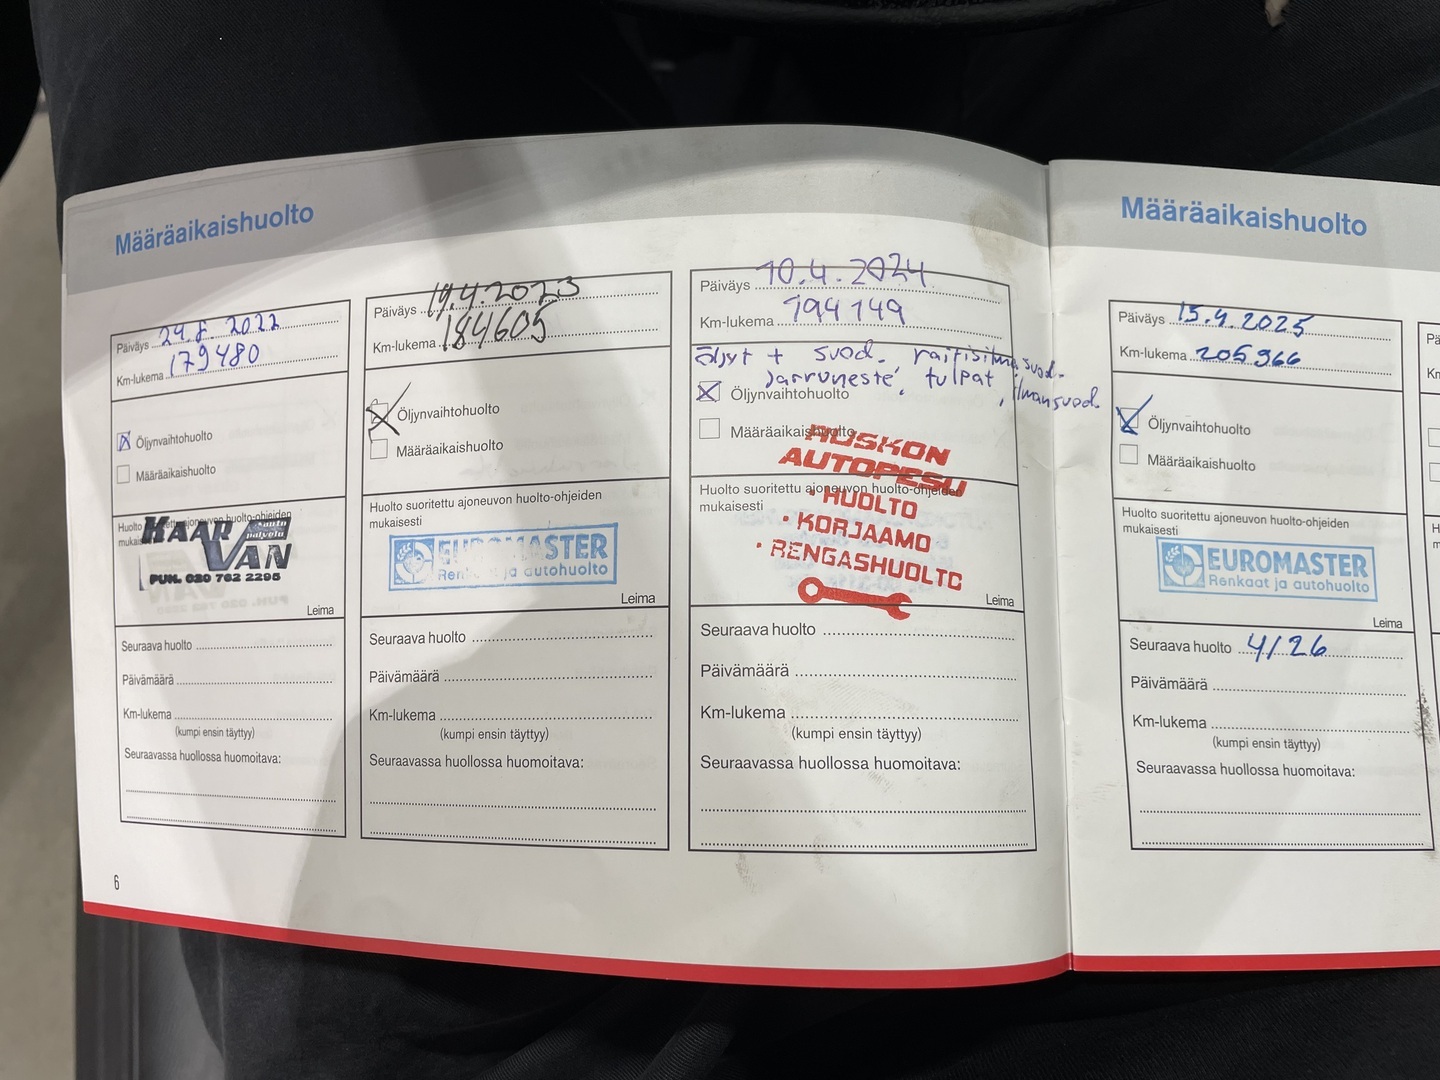 Määräaikaishuolto
Päiväys 29.8.2022
Km-lukema 179480
Öljynvaihtohuolto
Määräaikaishuolto
Huolto suoritettu ajoneuvon huolto-ohjeiden
mukaisesti
KAAR
VAN
auto
palvelu
PUH. 020 762 2295
Leima
Seuraava huolto
Päivämäärä
Km-lukema
(kumpi ensin täyttyy)
Seuraavassa huollossa huomoitava:
6
Päiväys 19.4.2023
Km-lukema 184605
Öljynvaihtohuolto
Määräaikaishuolto
Huolto suoritettu ajoneuvon huolto-ohjeiden
mukaisesti
EUROMASTER
Renkaat ja autohuolto
Leima
Seuraava huolto
Päivämäärä
Km-lukema
(kumpi ensin täyttyy)
Seuraavassa huollossa huomoitava:
Päiväys 10.4.2024
Km-lukema 194149
öljyt + suod. raitisilma suod.
Jarruneste, tulpat, ilmansuod.
Öljynvaihtohuolto
Määräaikaishuolto
Huolto suoritettu ajoneuvon huolto-ohjeiden
mukaisesti
AUTOPESU
• HUOLTO
• KORJAAMO
• RENGASHUOLTO
Leima
Seuraava huolto
Päivämäärä
Km-lukema
(kumpi ensin täyttyy)
Seuraavassa huollossa huomoitava:
Määräaikaishuolto
Päiväys 15.4.2025
Km-lukema 205966
Öljynvaihtohuolto
Määräaikaishuolto
Huolto suoritettu ajoneuvon huolto-ohjeiden
mukaisesti
EUROMASTER
Renkaat ja autohuolto
Leima
Seuraava huolto 4/26
Päivämäärä
Km-lukema
(kumpi ensin täyttyy)
Seuraavassa huollossa huomoitava: